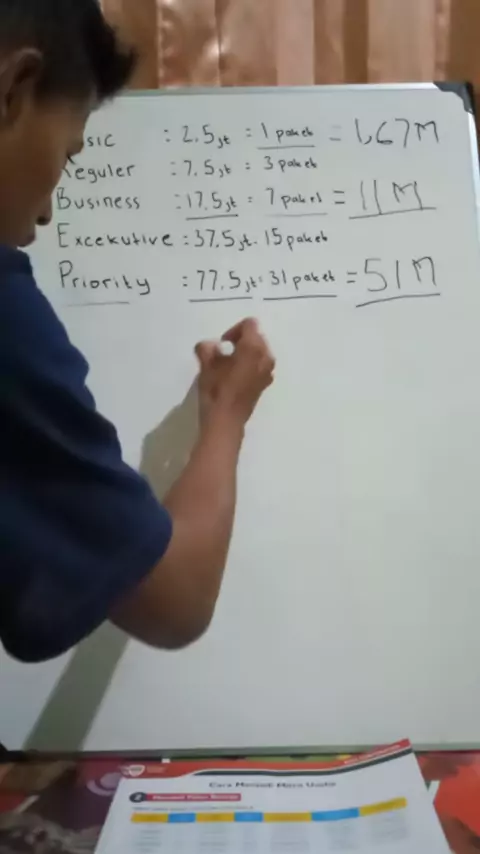 sic : 2.5 jt = 1 paket = 1,67 M
Reguler : 7.5 jt = 3 paket
Business : 17.5 jt = 7 paket = 11 M
Excekutive : 37.5 jt = 15 paket
Priority : 77.5 jt = 31 paket = 51 M
Cara Menjadi Mitra Usaha
2